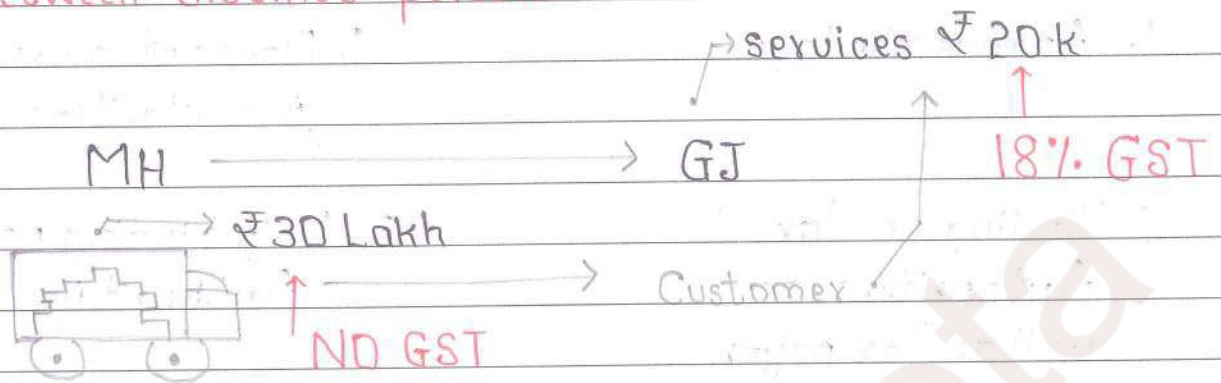 services ₹ 20k
MH GJ 18% GST
₹30 Lakh
Customer
NO GST